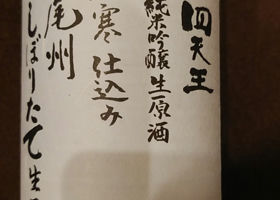 四天王
純米吟醸生原酒
寒仕込み
尾州
しぼりたて生